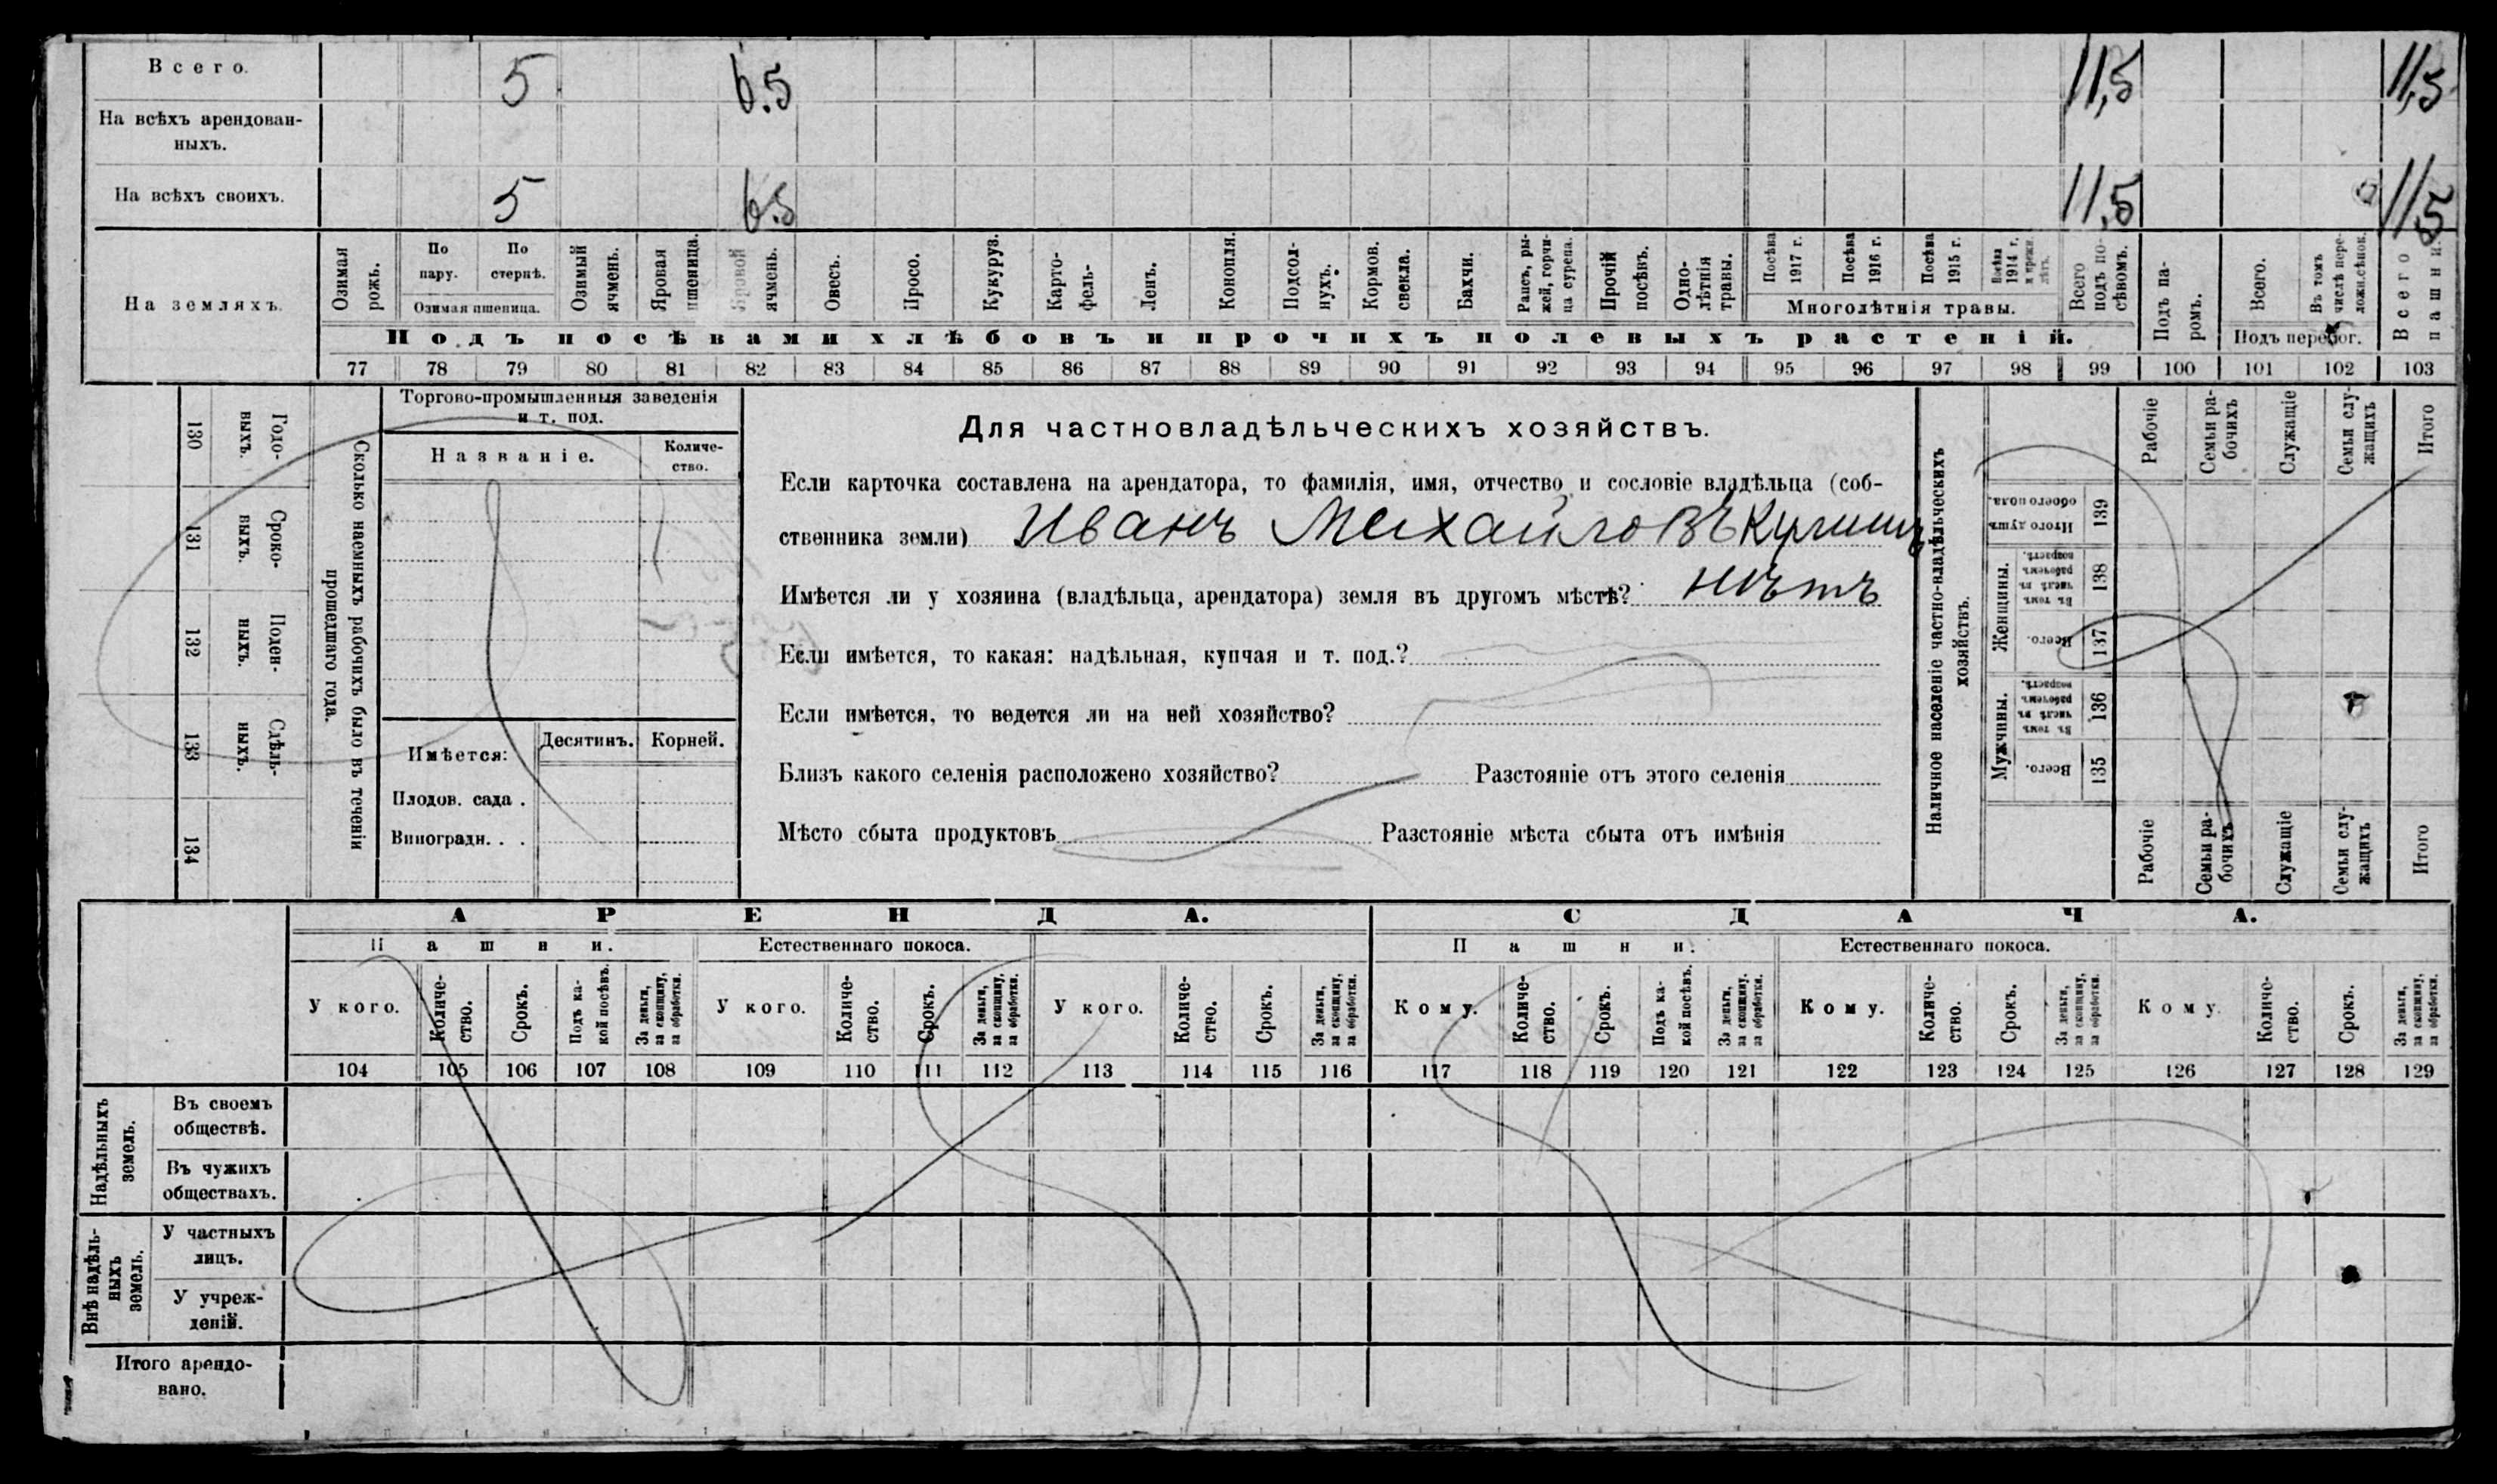 Всего. 5 6.5 11,5 11,5
На всѣхъ арендован-
ныхъ.
На всѣхъ своихъ. 5 6.5 11.5 11,5
На земляхъ.
Озимая рожь.
По пару.
По стернѣ.
Озимая пшеница.
Озимый ячмень.
Яровая пшеница.
Яровой ячмень.
Овесъ.
Просо.
Кукуруз.
Карто-
фель-
Ленъ.
Конопля.
Подсол-
нухъ.
Кормов. свекла.
Бахчи.
Рапсъ, ры-
жей, горчи-
ца сурепа.
Прочій посѣвъ.
Одно-
лѣтнія травы.
Посѣва 1917 г.
Посѣва 1916 г.
Посѣва 1915 г.
Посѣва 1914 г. и прежн. лѣтъ.
Многолѣтнія травы.
Всего подъ по-
сѣвомъ.
Подъ па-
ромъ.
Всего.
Въ томъ числѣ пере-
ложн.сѣнок.
Подъ перелог.
Всего пашни.
Подъ посѣвами хлѣбовъ и прочихъ полевыхъ растеній.
77 78 79 80 81 82 83 84 85 86 87 88 89 90 91 92 93 94 95 96 97 98 99 100 101 102 103
130 Годо-
выхъ.
131 Сроко-
выхъ.
132 Поден-
ныхъ.
133 Сдѣль-
ныхъ.
134
Сколько наемныхъ рабочихъ было въ теченіи
прошедшаго года.
Торгово-промышленныя заведенія
и т. под.
Названіе.
Количе-
ство.
Имѣется:
Десятинъ. Корней.
Плодов. сада .
Виноградн. . .
Для частновладѣльческихъ хозяйствъ.
Если карточка составлена на арендатора, то фамилія, имя, отчество и сословіе владѣльца (соб-
ственника земли) Иванъ Михайловъ
Имѣется ли у хозяина (владѣльца, арендатора) земля въ другомъ мѣстѣ? нѣтъ
Если имѣется, то какая: надѣльная, купчая и т. под.?
Если имѣется, то ведется ли на ней хозяйство?
Близъ какого селенія расположено хозяйство? Разстояніе отъ этого селенія
Мѣсто сбыта продуктовъ Разстояніе мѣста сбыта отъ имѣнія
Наличное населеніе частно-владѣльческихъ
хозяйствъ.
Рабочіе
Семьи ра-
бочихъ
Служащіе
Семьи слу-
жащихъ
Итого
Итого душъ обоего пола. 139
Женщины.
Въ томъ числѣ въ рабочемъ возрастѣ. 138
Всего. 137
Мужчины.
Въ томъ числѣ въ рабочемъ возрастѣ. 136
Всего. 135
Рабочіе
Семьи ра-
бочихъ
Служащіе
Семьи слу-
жащихъ
Итого
АРЕНДА. СДАЧА.
Пашни. Естественнаго покоса. Пашни. Естественнаго покоса.
У кого.
Количе-
ство.
Срокъ.
Подъ ка-
кой посѣвъ.
За деньги,
за скопщину,
за обработки.
У кого.
Количе-
ство.
Срокъ.
За деньги,
за скопщину,
за обработки.
У кого.
Количе-
ство.
Срокъ.
За деньги,
за скопщину,
за обработки.
Кому.
Количе-
ство.
Срокъ.
Подъ ка-
кой посѣвъ.
За деньги,
за скопщину.
за обработки.
Кому.
Количе-
ство.
Срокъ.
За деньги,
за скопщину,
за обработки.
Кому.
Количе-
ство.
Срокъ.
За деньги,
за скопщину,
за обработки.
104 105 106 107 108 109 110 111 112 113 114 115 116 117 118 119 120 121 122 123 124 125 126 127 128 129
Надѣльныхъ
земель.
Въ своемъ
обществѣ.
Въ чужихъ
обществахъ.
Внѣ надѣль-
ныхъ
земель.
У частныхъ
лицъ.
У учреж-
деній.
Итого арендо-
вано.